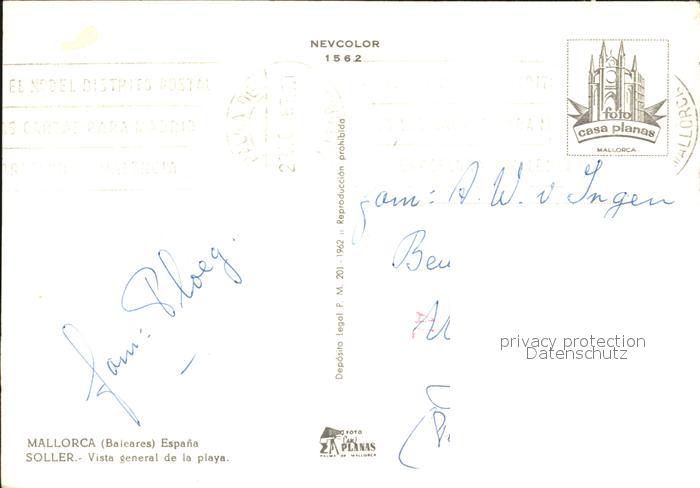 NEVCOLOR
1562
EL Nº DEL DISTRITO POSTAL
CARTAS PARA MADRID
foto
casa planas
MALLORCA
MALLORCA
Reproducción prohibida
Depósito Legal P. M. 201 - 1962
fam: A. W. v. Ingen
fam: Ploeg.
privacy protection
Datenschutz
FOTO
PLANAS
PALMA DE MALLORCA
MALLORCA (Baleares) España
SOLLER.- Vista general de la playa.